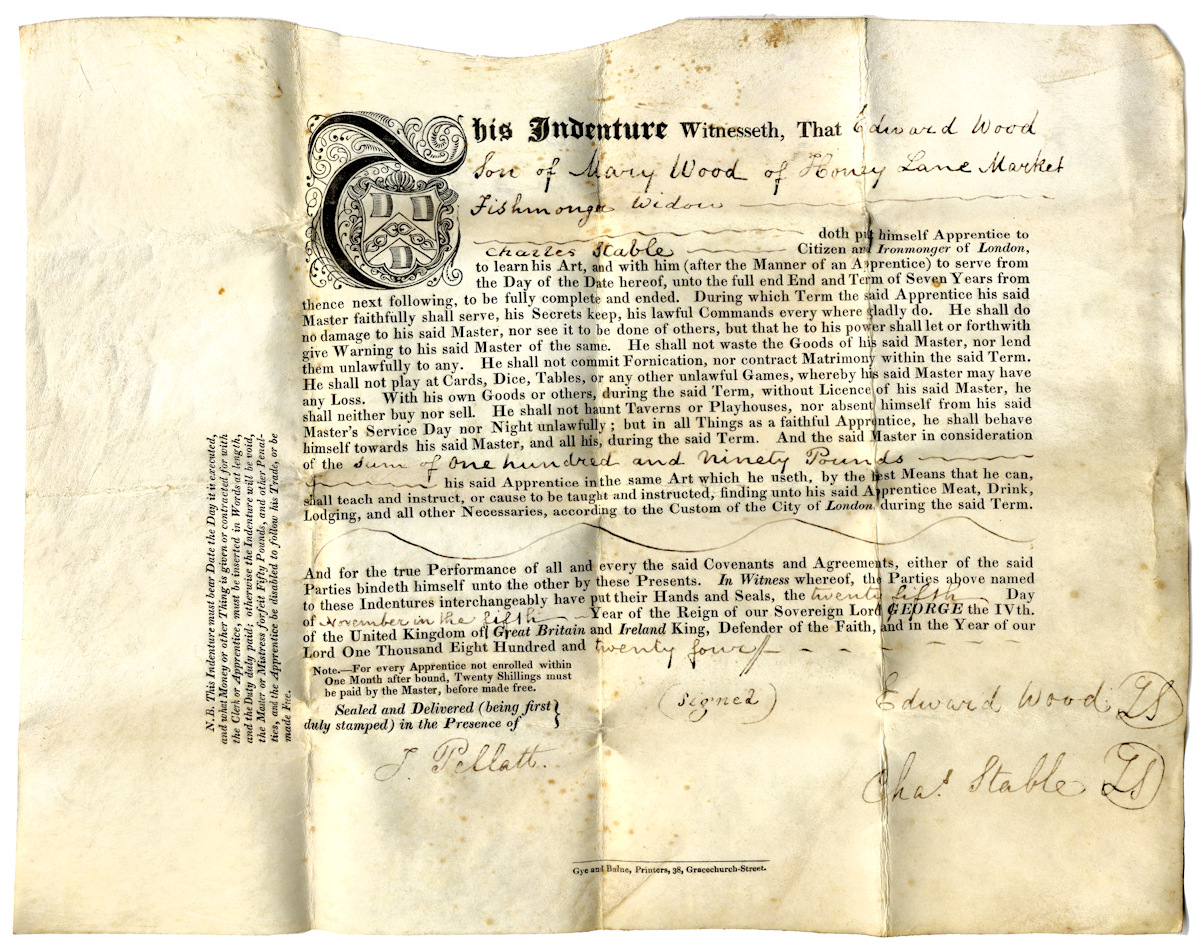 This Indenture Witnesseth, That Edward Wood
Son of Mary Wood of Honey Lane Market
Fishmonger Widow
doth put himself Apprentice to
Charles Stable Citizen and Ironmonger of London,
to learn his Art, and with him (after the Manner of an Apprentice) to serve from
the Day of the Date hereof, unto the full end End and Term of Seven Years from
thence next following, to be fully complete and ended. During which Term the said Apprentice his said
Master faithfully shall serve, his Secrets keep, his lawful Commands every where gladly do. He shall do
no damage to his said Master, nor see it to be done of others, but that he to his power shall let or forthwith
give Warning to his said Master of the same. He shall not waste the Goods of his said Master, nor lend
them unlawfully to any. He shall not commit Fornication, nor contract Matrimony within the said Term.
He shall not play at Cards, Dice, Tables, or any other unlawful Games, whereby his said Master may have
any Loss. With his own Goods or others, during the said Term, without Licence of his said Master, he
shall neither buy nor sell. He shall not haunt Taverns or Playhouses, nor absent himself from his said
Master's Service Day nor Night unlawfully; but in all Things as a faithful Apprentice, he shall behave
himself towards his said Master, and all his, during the said Term. And the said Master in consideration
of the Sum of One hundred and Ninety Pounds
his said Apprentice in the same Art which he useth, by the best Means that he can,
shall teach and instruct, or cause to be taught and instructed, finding unto his said Apprentice Meat, Drink,
Lodging, and all other Necessaries, according to the Custom of the City of London during the said Term.
And for the true Performance of all and every the said Covenants and Agreements, either of the said
Parties bindeth himself unto the other by these Presents. In Witness whereof, the Parties above named
to these Indentures interchangeably have put their Hands and Seals, the twenty fifth Day
of November in the fifth Year of the Reign of our Sovereign Lord GEORGE the IVth.
of the United Kingdom of Great Britain and Ireland King, Defender of the Faith, and in the Year of our
Lord One Thousand Eight Hundred and twenty four
Note.—For every Apprentice not enrolled within
One Month after bound, Twenty Shillings must
be paid by the Master, before made free.
Sealed and Delivered (being first
duly stamped) in the Presence of
J. Pellatt.
(signed)
Edward Wood LS
Chas. Stable LS
Gye and Balne, Printers, 38, Gracechurch-Street.
N.B. This Indenture must bear Date the Day it is executed,
and what Money or other Thing is given or contracted for with
the Clerk or Apprentice, must be inserted in Words at length,
and the Duty duly paid; otherwise the Indenture will be void,
the Master or Mistress forfeit Fifty Pounds, and other Penal-
ties, and the Apprentice be disabled to follow his Trade, or be
made Free.